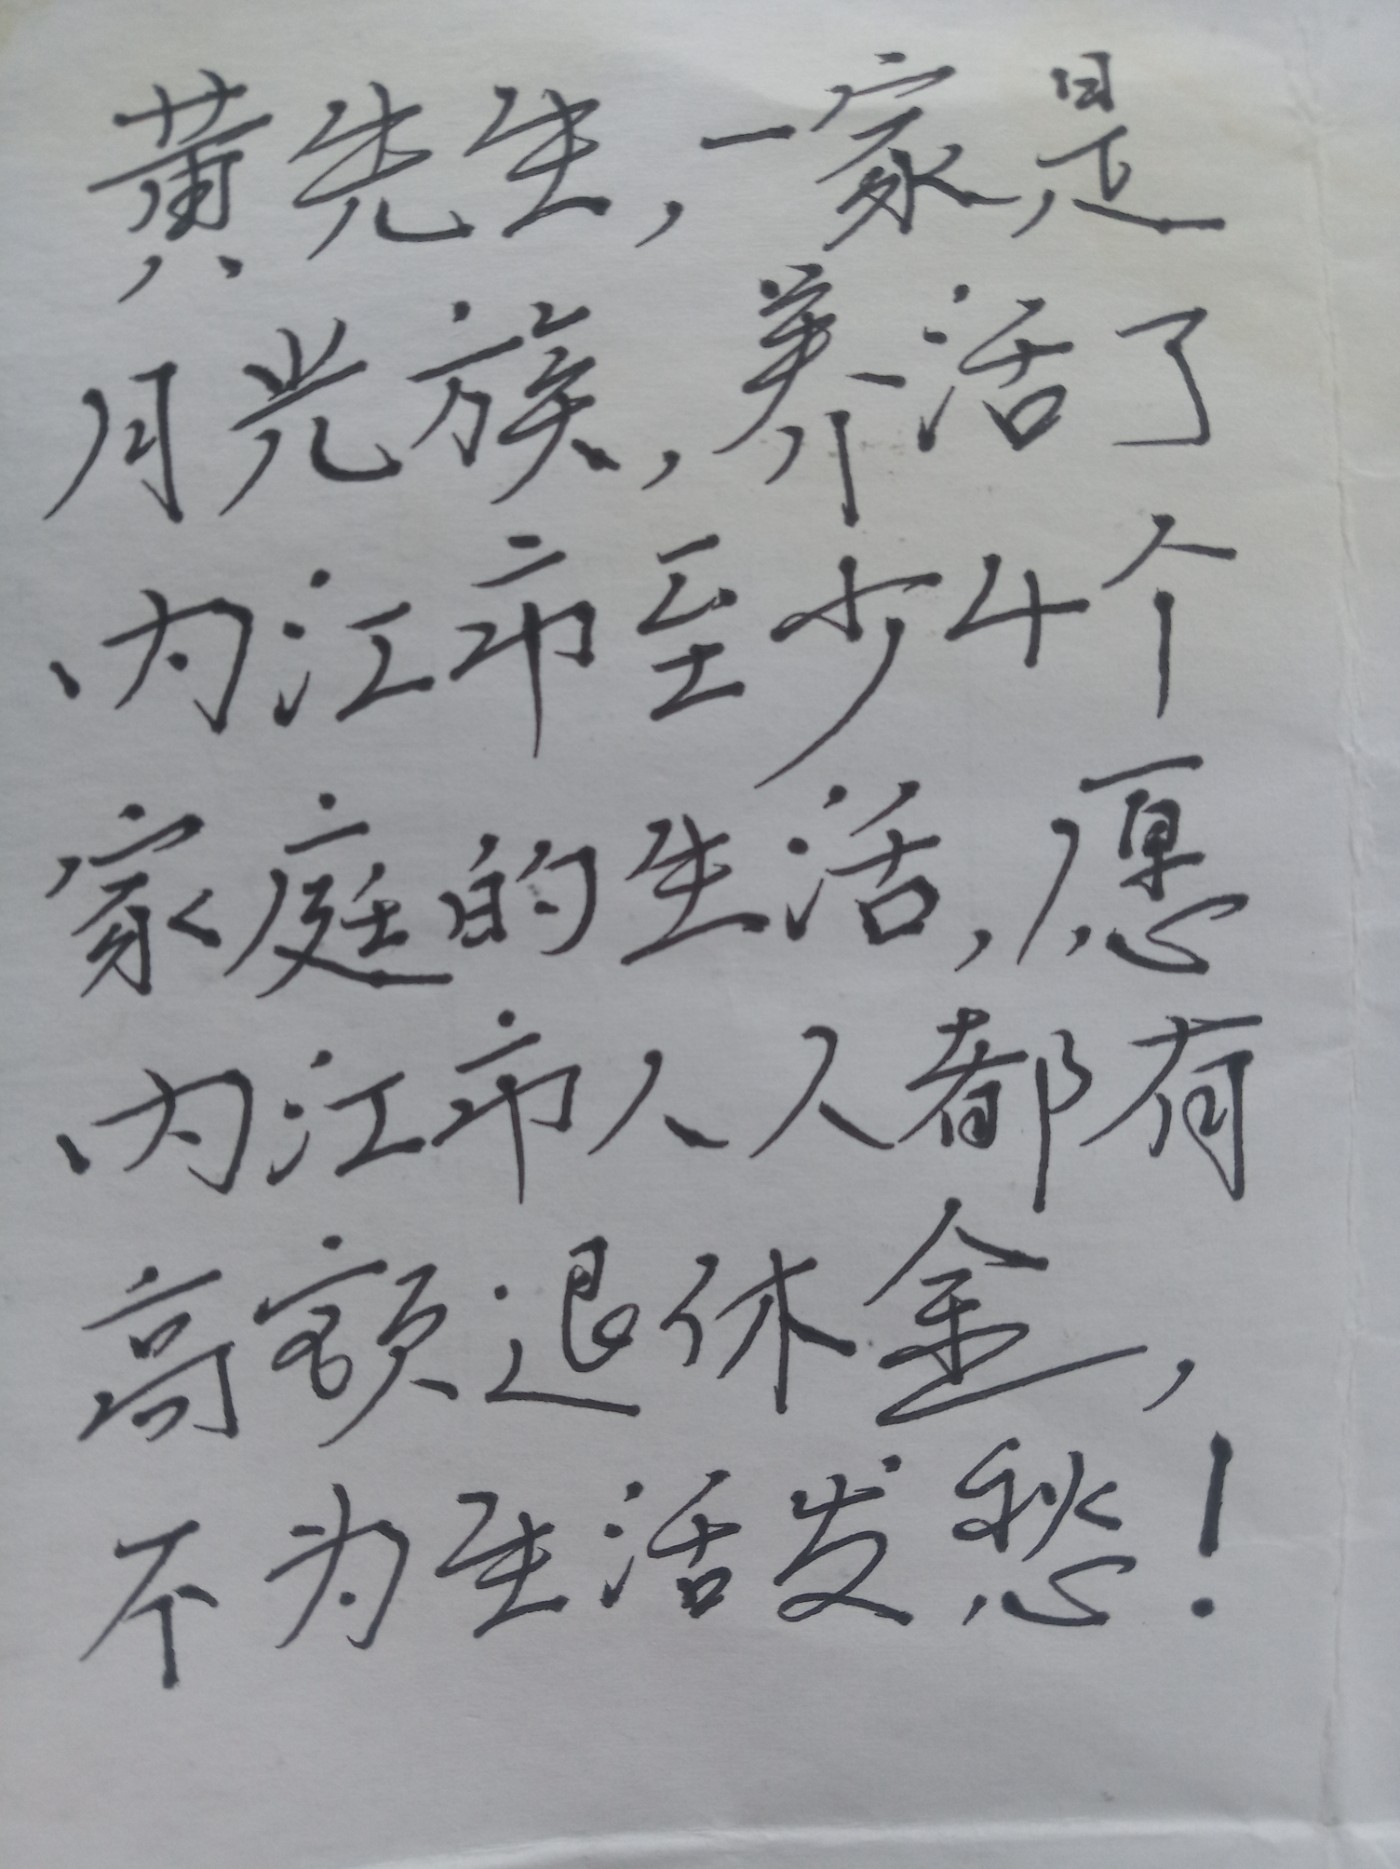 黄先生,一家是
月光族,养活了
内江市至少4个
家庭的生活,愿
内江市人人都有
高额退休金,
不为生活发愁!